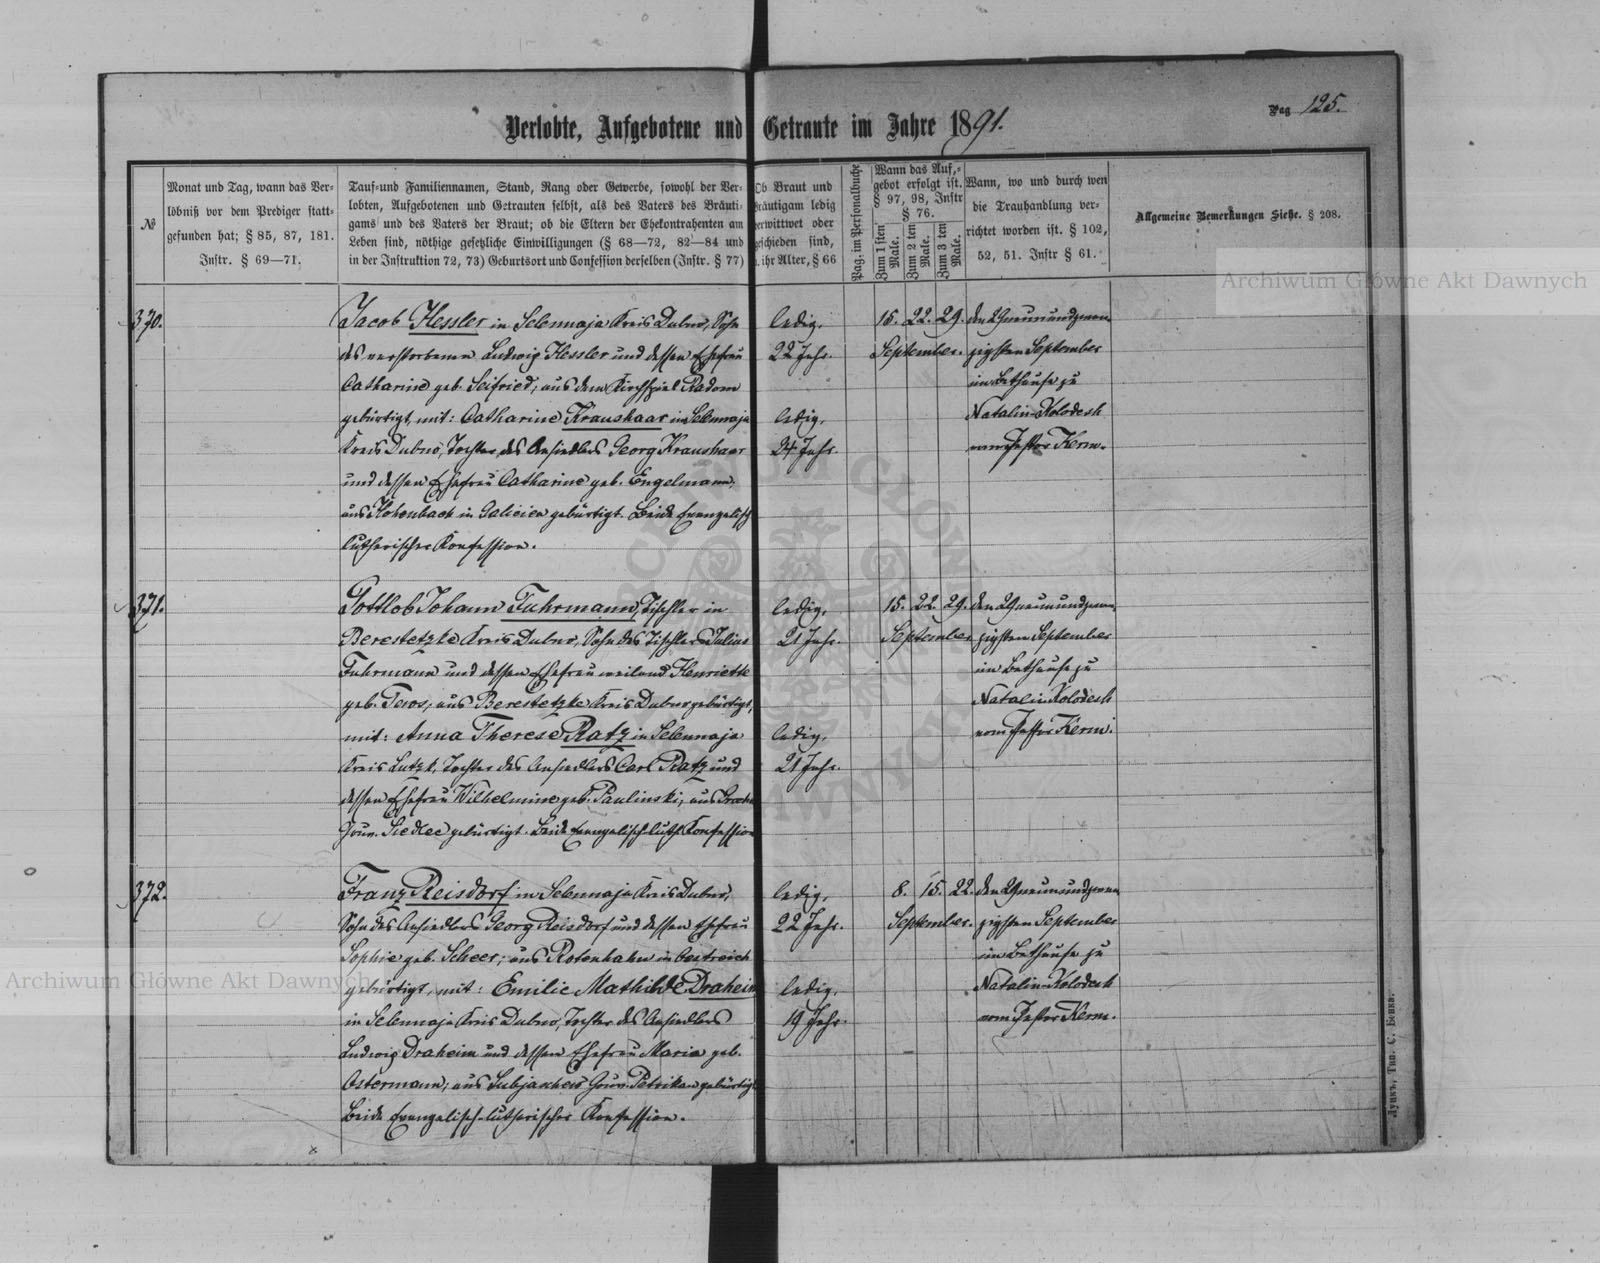 Pag 125.
Verlobte, Aufgebotene und Getraute im Jahre 1891.
№
Monat und Tag, wann das Ver-
löbniß vor dem Prediger statt-
gefunden hat; § 85, 87, 181.
Instr. § 69—71.
Tauf- und Familiennamen, Stand, Rang oder Gewerbe, sowohl der Ver-
lobten, Aufgebotenen und Getrauten selbst, als des Vaters des Bräuti-
gams und des Vaters der Braut; ob die Eltern der Ehekontrahenten am
Leben sind, nöthige gesetzliche Einwilligungen (§ 68—72, 82—84 und
in der Instruktion 72, 73) Geburtsort und Confession derselben (Instr. § 77)
Ob Braut und
Bräutigam ledig
verwittwet oder
geschieden sind,
u. ihr Alter, § 66
Pag. im Personalbuche
Wann das Auf-
gebot erfolgt ist.
§ 97, 98, Instr
§ 76.
Zum 1 sten Male.
Zum 2 ten Male.
Zum 3 ten Male.
Wann, wo und durch wen
die Trauhandlung ver-
richtet worden ist. § 102,
52, 51. Instr § 61.
Allgemeine Bemerkungen Siehe. § 208.
370.
Jacob Hessler in Selennaja Kreis Dubno, Sohn
des verstorbenen Ludwig Hessler und dessen Ehefrau
Catharine geb. Seifried; aus dem Kirchspiel Radom
gebürtigt, mit: Catharine Kraushaar in Selennaja
Kreis Dubno, Tochter des Ansiedlers Georg Kraushaar
und dessen Ehefrau Catharine geb. Engelmann,
aus Hohenbach in Galicien gebürtigt. Beide Evangelisch
lutherischer Konfession.
ledig.
22 Jahr.
ledig.
24 Jahr.
15. 22. 29.
September.
den 29 neunundzwan
zigsten September
im Bethause zu
Natalin-Kolodesh
vom Pastor Kerm.
371.
Gottlob Johann Fuhrmann, Tischler in
Berestetzke Kreis Dubno, Sohn des Tischlers Julius
Fuhrmann und dessen Ehefrau weiland Henriette
geb. aus Berestetzke Kreis Dubno gebürtigt,
mit: Anna Therese Ratz in Selennaja
Kreis Lutzk, Tochter des Ansiedlers Carl Ratz und
dessen Ehefrau Wilhelmine geb. Paulinski, aus
Gouv. Siedlec gebürtigt. Beide Evangelisch-luth. Konfession
ledig.
21 Jahr.
ledig.
21 Jahr.
15. 22. 29.
September
den 29 neunundzwan
zigsten September
im Bethause zu
Natalin-Kolodesh
vom Pastor Kerm.
372.
Franz Reisdorf in Selennaja Kreis Dubno,
Sohn des Ansiedlers Georg Reisdorf und dessen Ehefrau
Sophie geb. Scheer; aus Rotenhahn in Oestreich
gebürtigt, mit: Emilie Mathilde Draheim
in Selennaja Kreis Dubno, Tochter des Ansiedlers
Ludwig Draheim und dessen Ehefrau Maria geb.
Ostermann; aus Gouv. Petrikau gebürtigt
Beide Evangelisch-lutherischer Konfession.
ledig.
22 Jahr.
ledig.
19 Jahr.
8. 15. 22.
September.
den 29 neunundzwan
zigsten September
im Bethause zu
Natalin-Kolodesh
vom Pastor Kerm.
Луцкъ, Тип. С. Бенка.
Archiwum Główne Akt Dawnych
Archiwum Główne Akt Dawnych